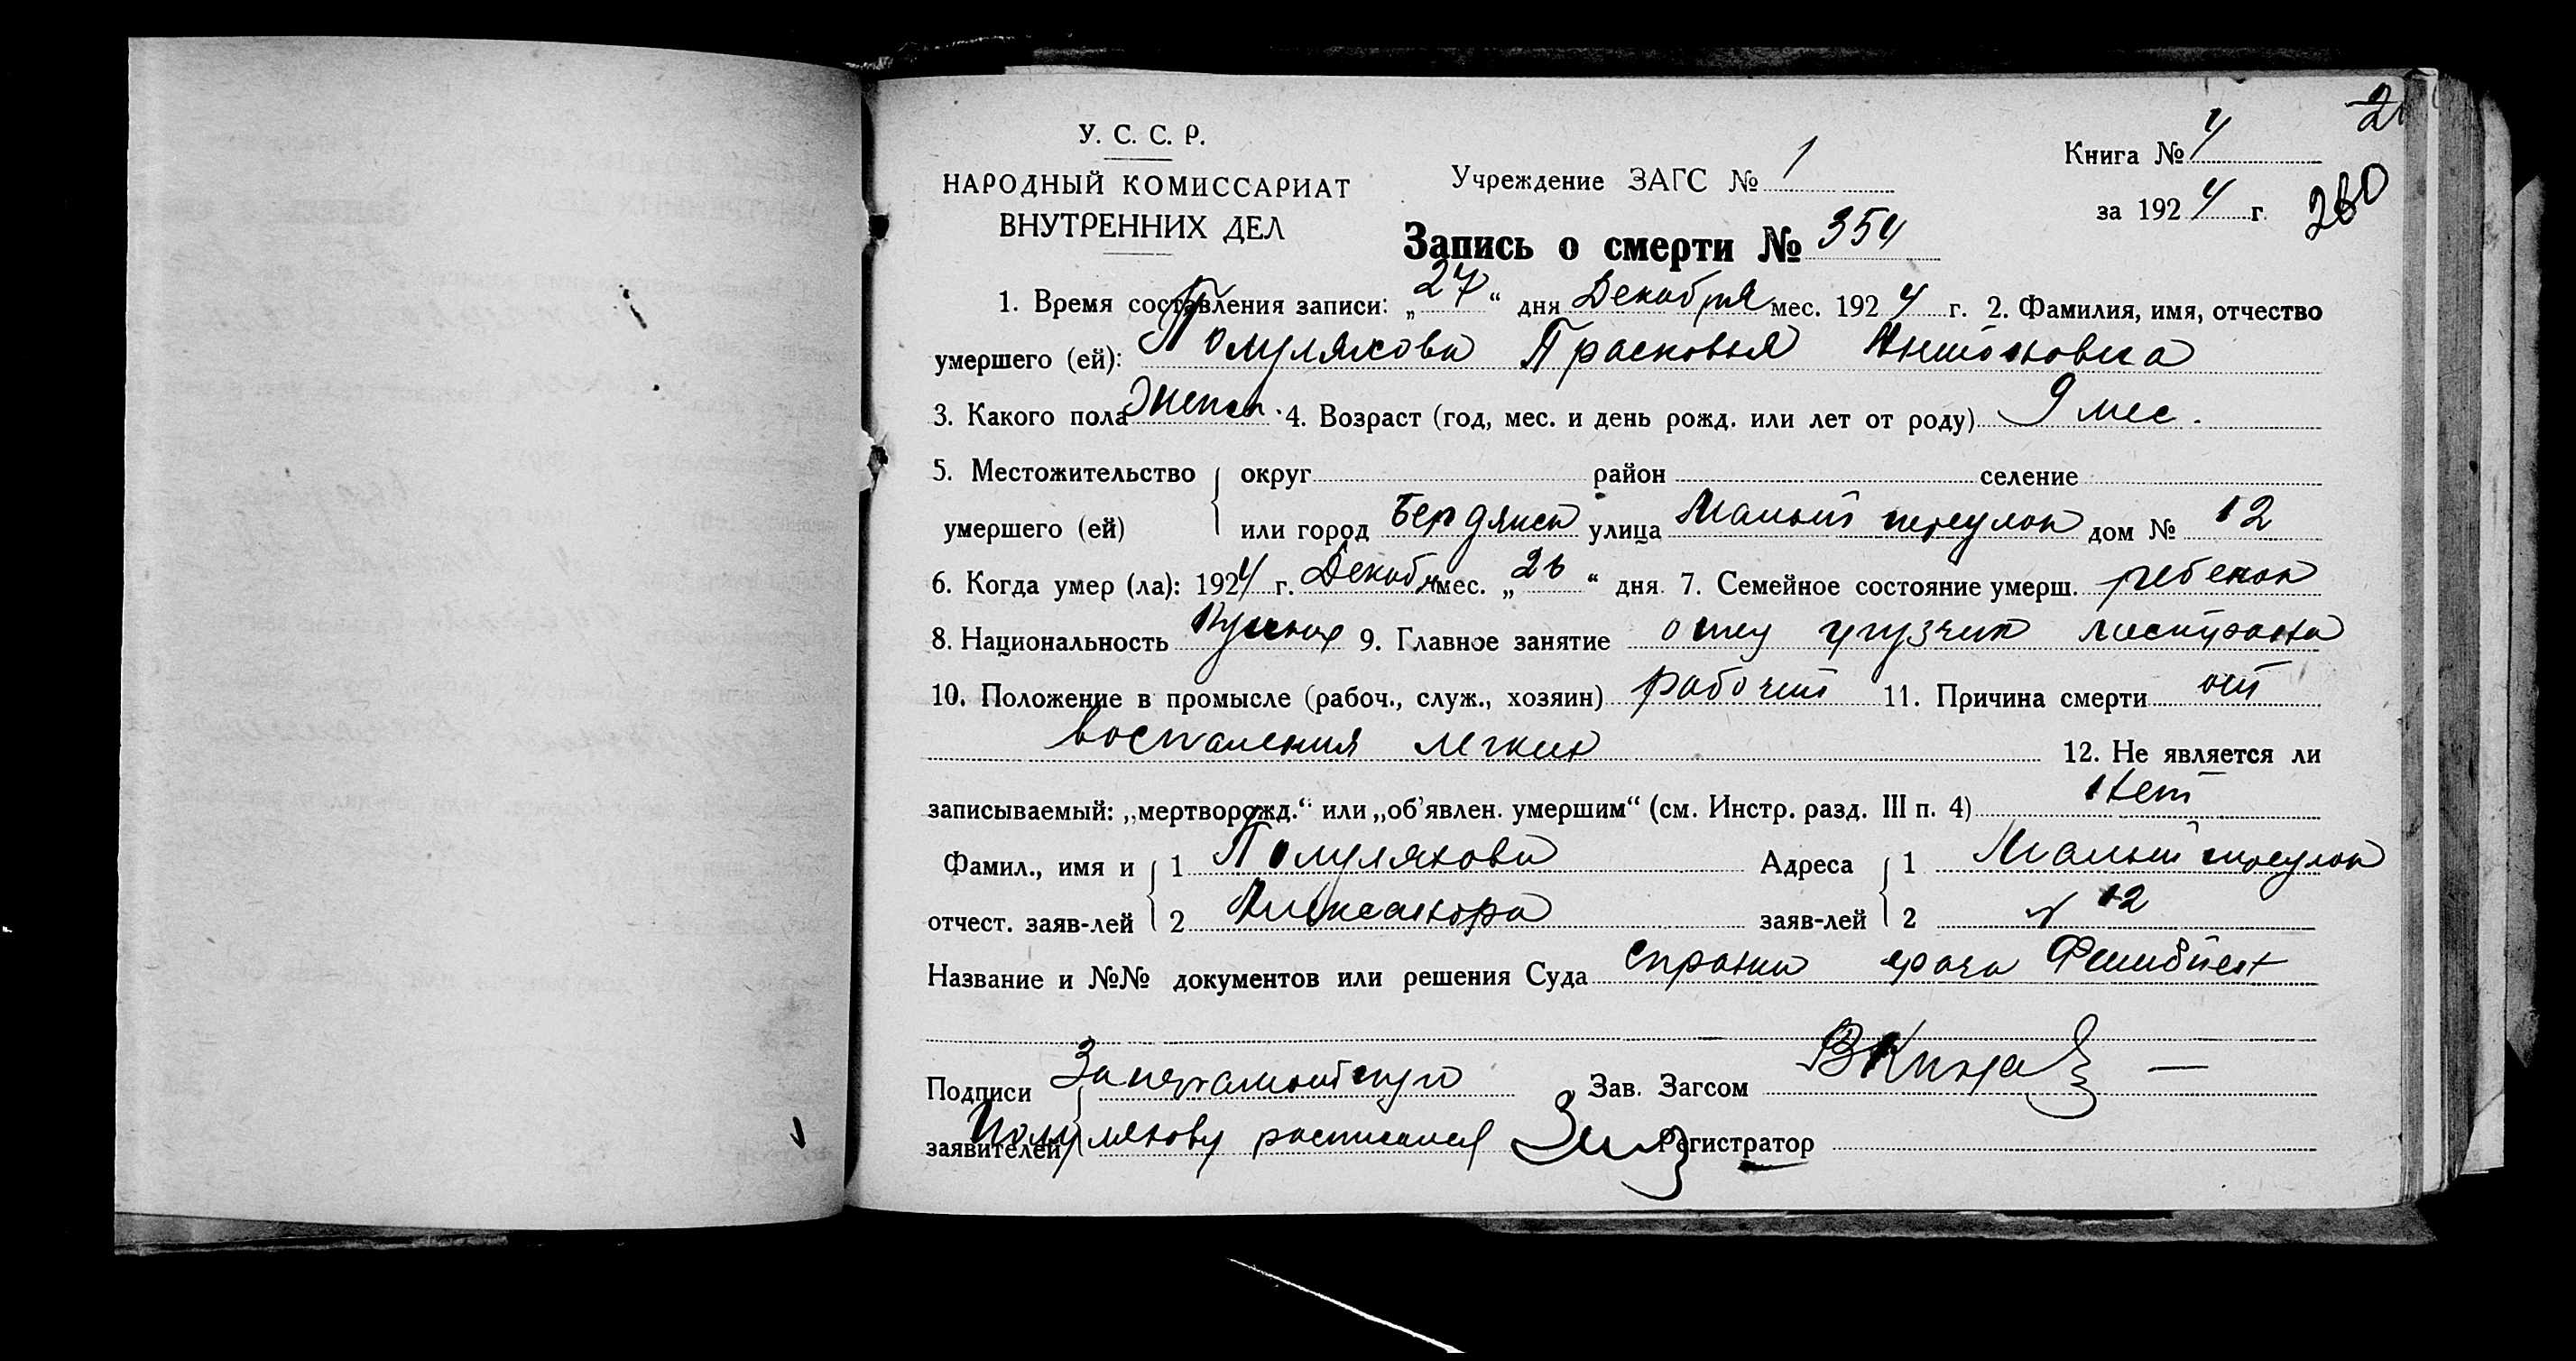 У. С. С. Р.
НАРОДНЫЙ КОМИССАРИАТ
ВНУТРЕННИХ ДЕЛ
Учреждение ЗАГС № 1
Книга № 4
за 1924 г.
260
Запись о смерти № 354
1. Время составления записи: „27“ дня Декабря мес. 1924 г. 2. Фамилия, имя, отчество
умершего (ей): Полулякова Прасковья Антоновна
3. Какого пола женск. 4. Возраст (год, мес. и день рожд. или лет от роду) 9 мес.
5. Местожительство округ район селение
умершего (ей) или город Бердянск улица Малый переулок дом № 12
6. Когда умер (ла): 1924 г. Декабря мес. „26“ дня. 7. Семейное состояние умерш. ребенок
8. Национальность 9. Главное занятие отец грузчик
10. Положение в промысле (рабоч., служ., хозяин) рабочий 11. Причина смерти от
воспаления легких 12. Не является ли
записываемый: „мертворожд.“ или „об'явлен. умершим“ (см. Инстр. разд. III п. 4) Нет
Фамил., имя и 1 Полулякова Адреса 1 Малый переулок
отчест. заяв-лей 2 Александра заяв-лей 2 № 12
Название и №№ документов или решения Суда справка врача
Подписи За неграмотную Зав. Загсом
заявителей Полулякову расписался Регистратор